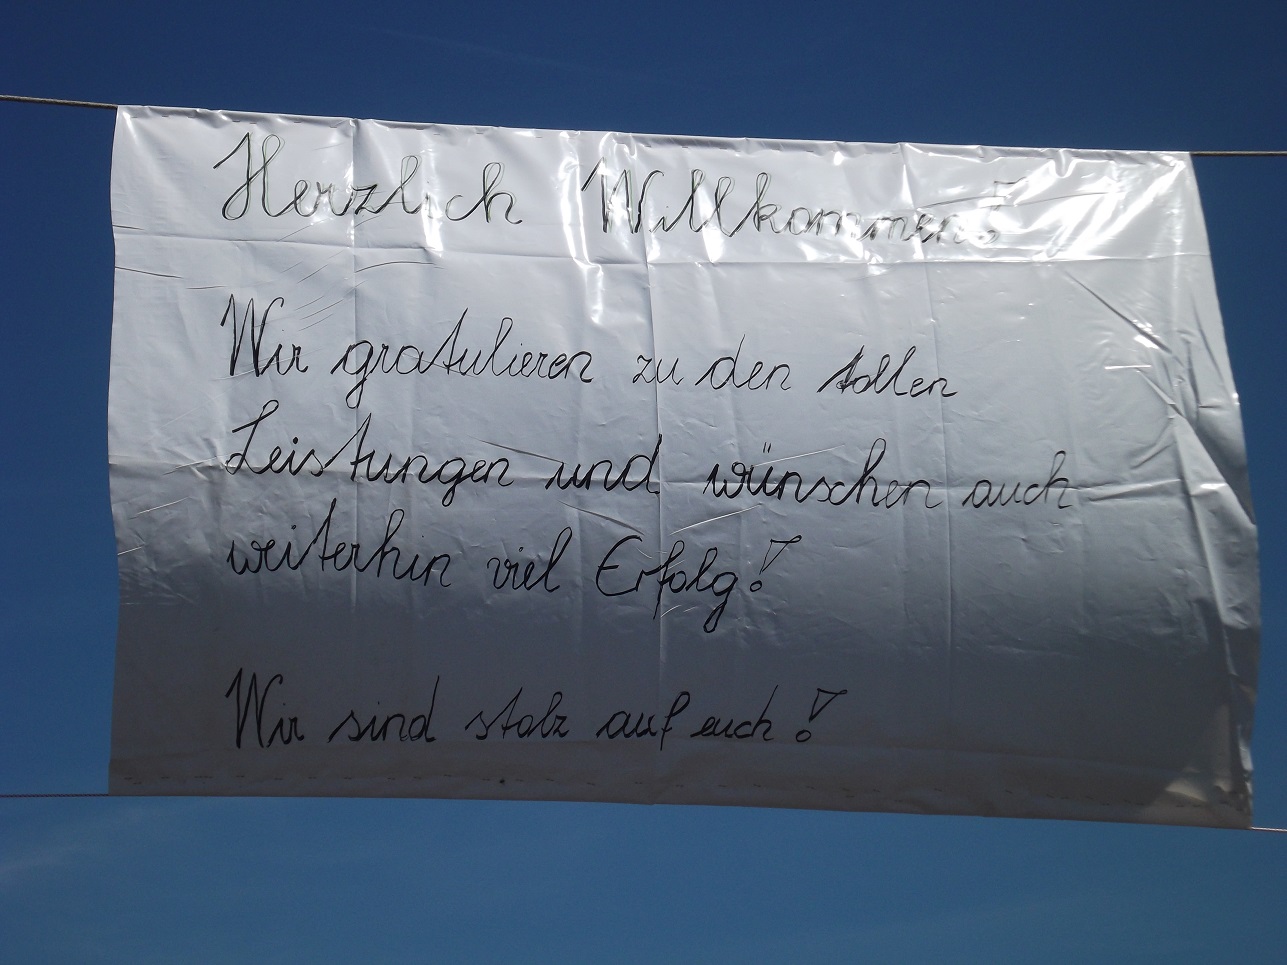 Herzlich Willkommen!
Wir gratulieren zu den tollen
Leistungen und wünschen auch
weiterhin viel Erfolg!
Wir sind stolz auf euch!